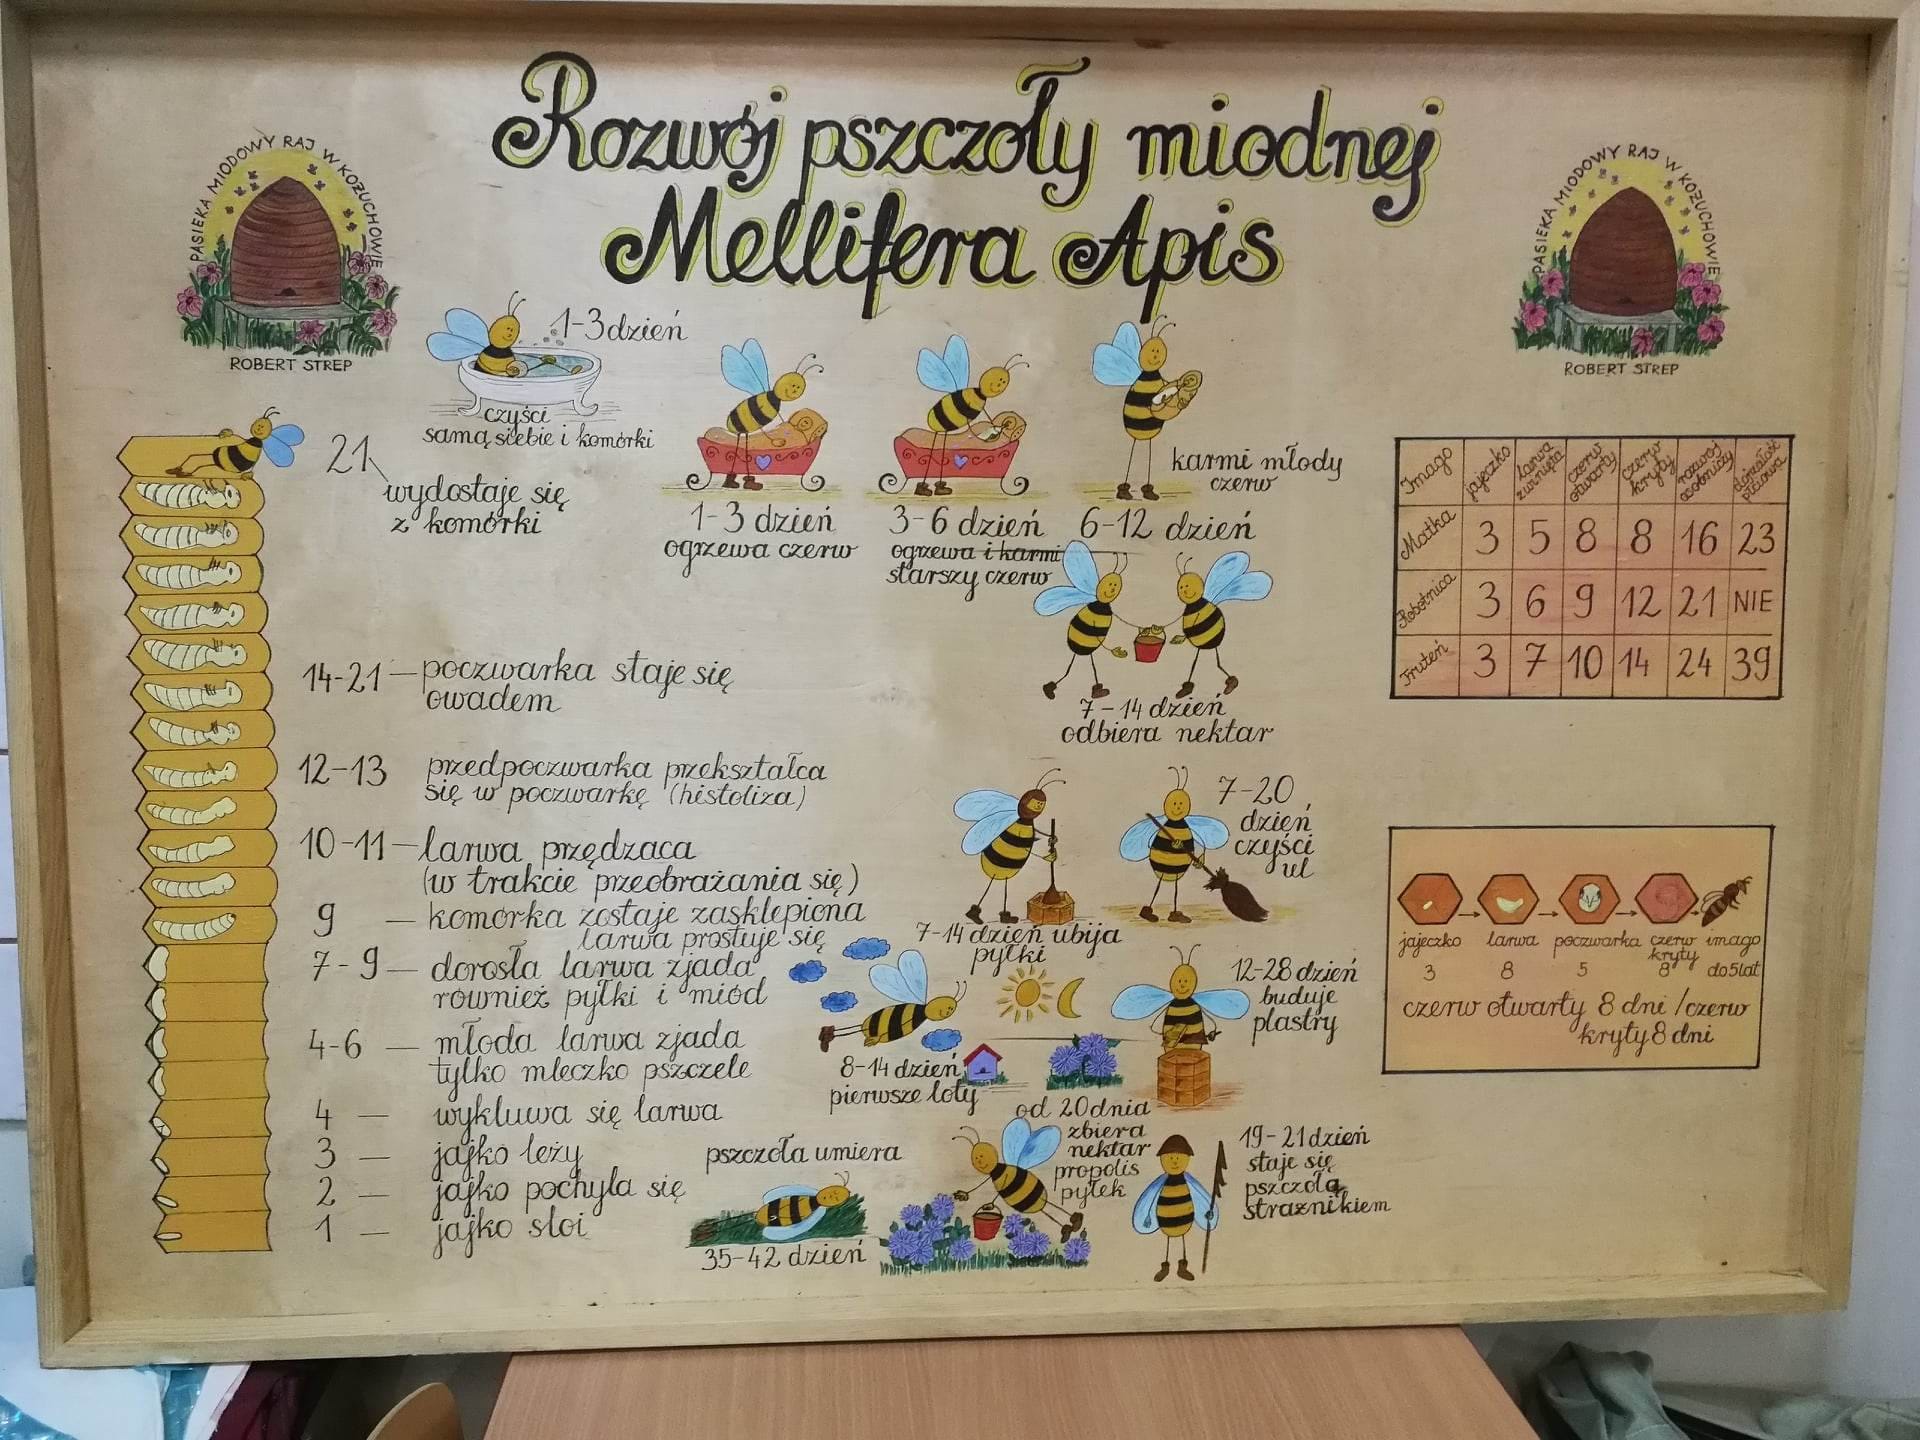 Rozwój pszczoły miodnej
Mellifera Apis
PASIEKA MIODOWY RAJ W KOŻUCHOWIE
ROBERT STREP
PASIEKA MIODOWY RAJ W KOŻUCHOWIE
ROBERT STREP
1-3 dzień
czyści
samą siebie i komórki
1-3 dzień
ogrzewa czerw
3-6 dzień
ogrzewa i karmi
starszy czerw
karmi młody
czerw
6-12 dzień
7-14 dzień
odbiera nektar
7-20
dzień
czyści
ul
7-14 dzień ubija
pyłki
12-28 dzień
buduje
plastry
8-14 dzień
pierwsze loty
od 20 dnia
zbiera
nektar
propolis
pyłek
19-21 dzień
staje się
pszczołą
strażnikiem
pszczoła umiera
35-42 dzień
21
wydostaje się
z komórki
14-21 — poczwarka staje się
owadem
12-13 przedpoczwarka przekształca
się w poczwarkę (histoliza)
10-11 — larwa przędzaca
(w trakcie przeobrażania się)
9 — komórka zostaje zasklepiona
larwa prostuje się
7-9 — dorosła larwa zjada
również pyłki i miód
4-6 — młoda larwa zjada
tylko mleczko pszczele
4 — wykluwa się larwa
3 — jajko leży
2 — jajko pochyla się
1 — jajko stoi
Imago jajeczko larwa zwinięta czerw otwarty czerw kryty rozwój osobniczy dojrzałość płciowa
Matka 3 5 8 8 16 23
Robotnica 3 6 9 12 21 NIE
Truteń 3 7 10 14 24 39
jajeczko larwa poczwarka czerw kryty imago
3 8 5 8 do 5 lat
czerw otwarty 8 dni / czerw
kryty 8 dni